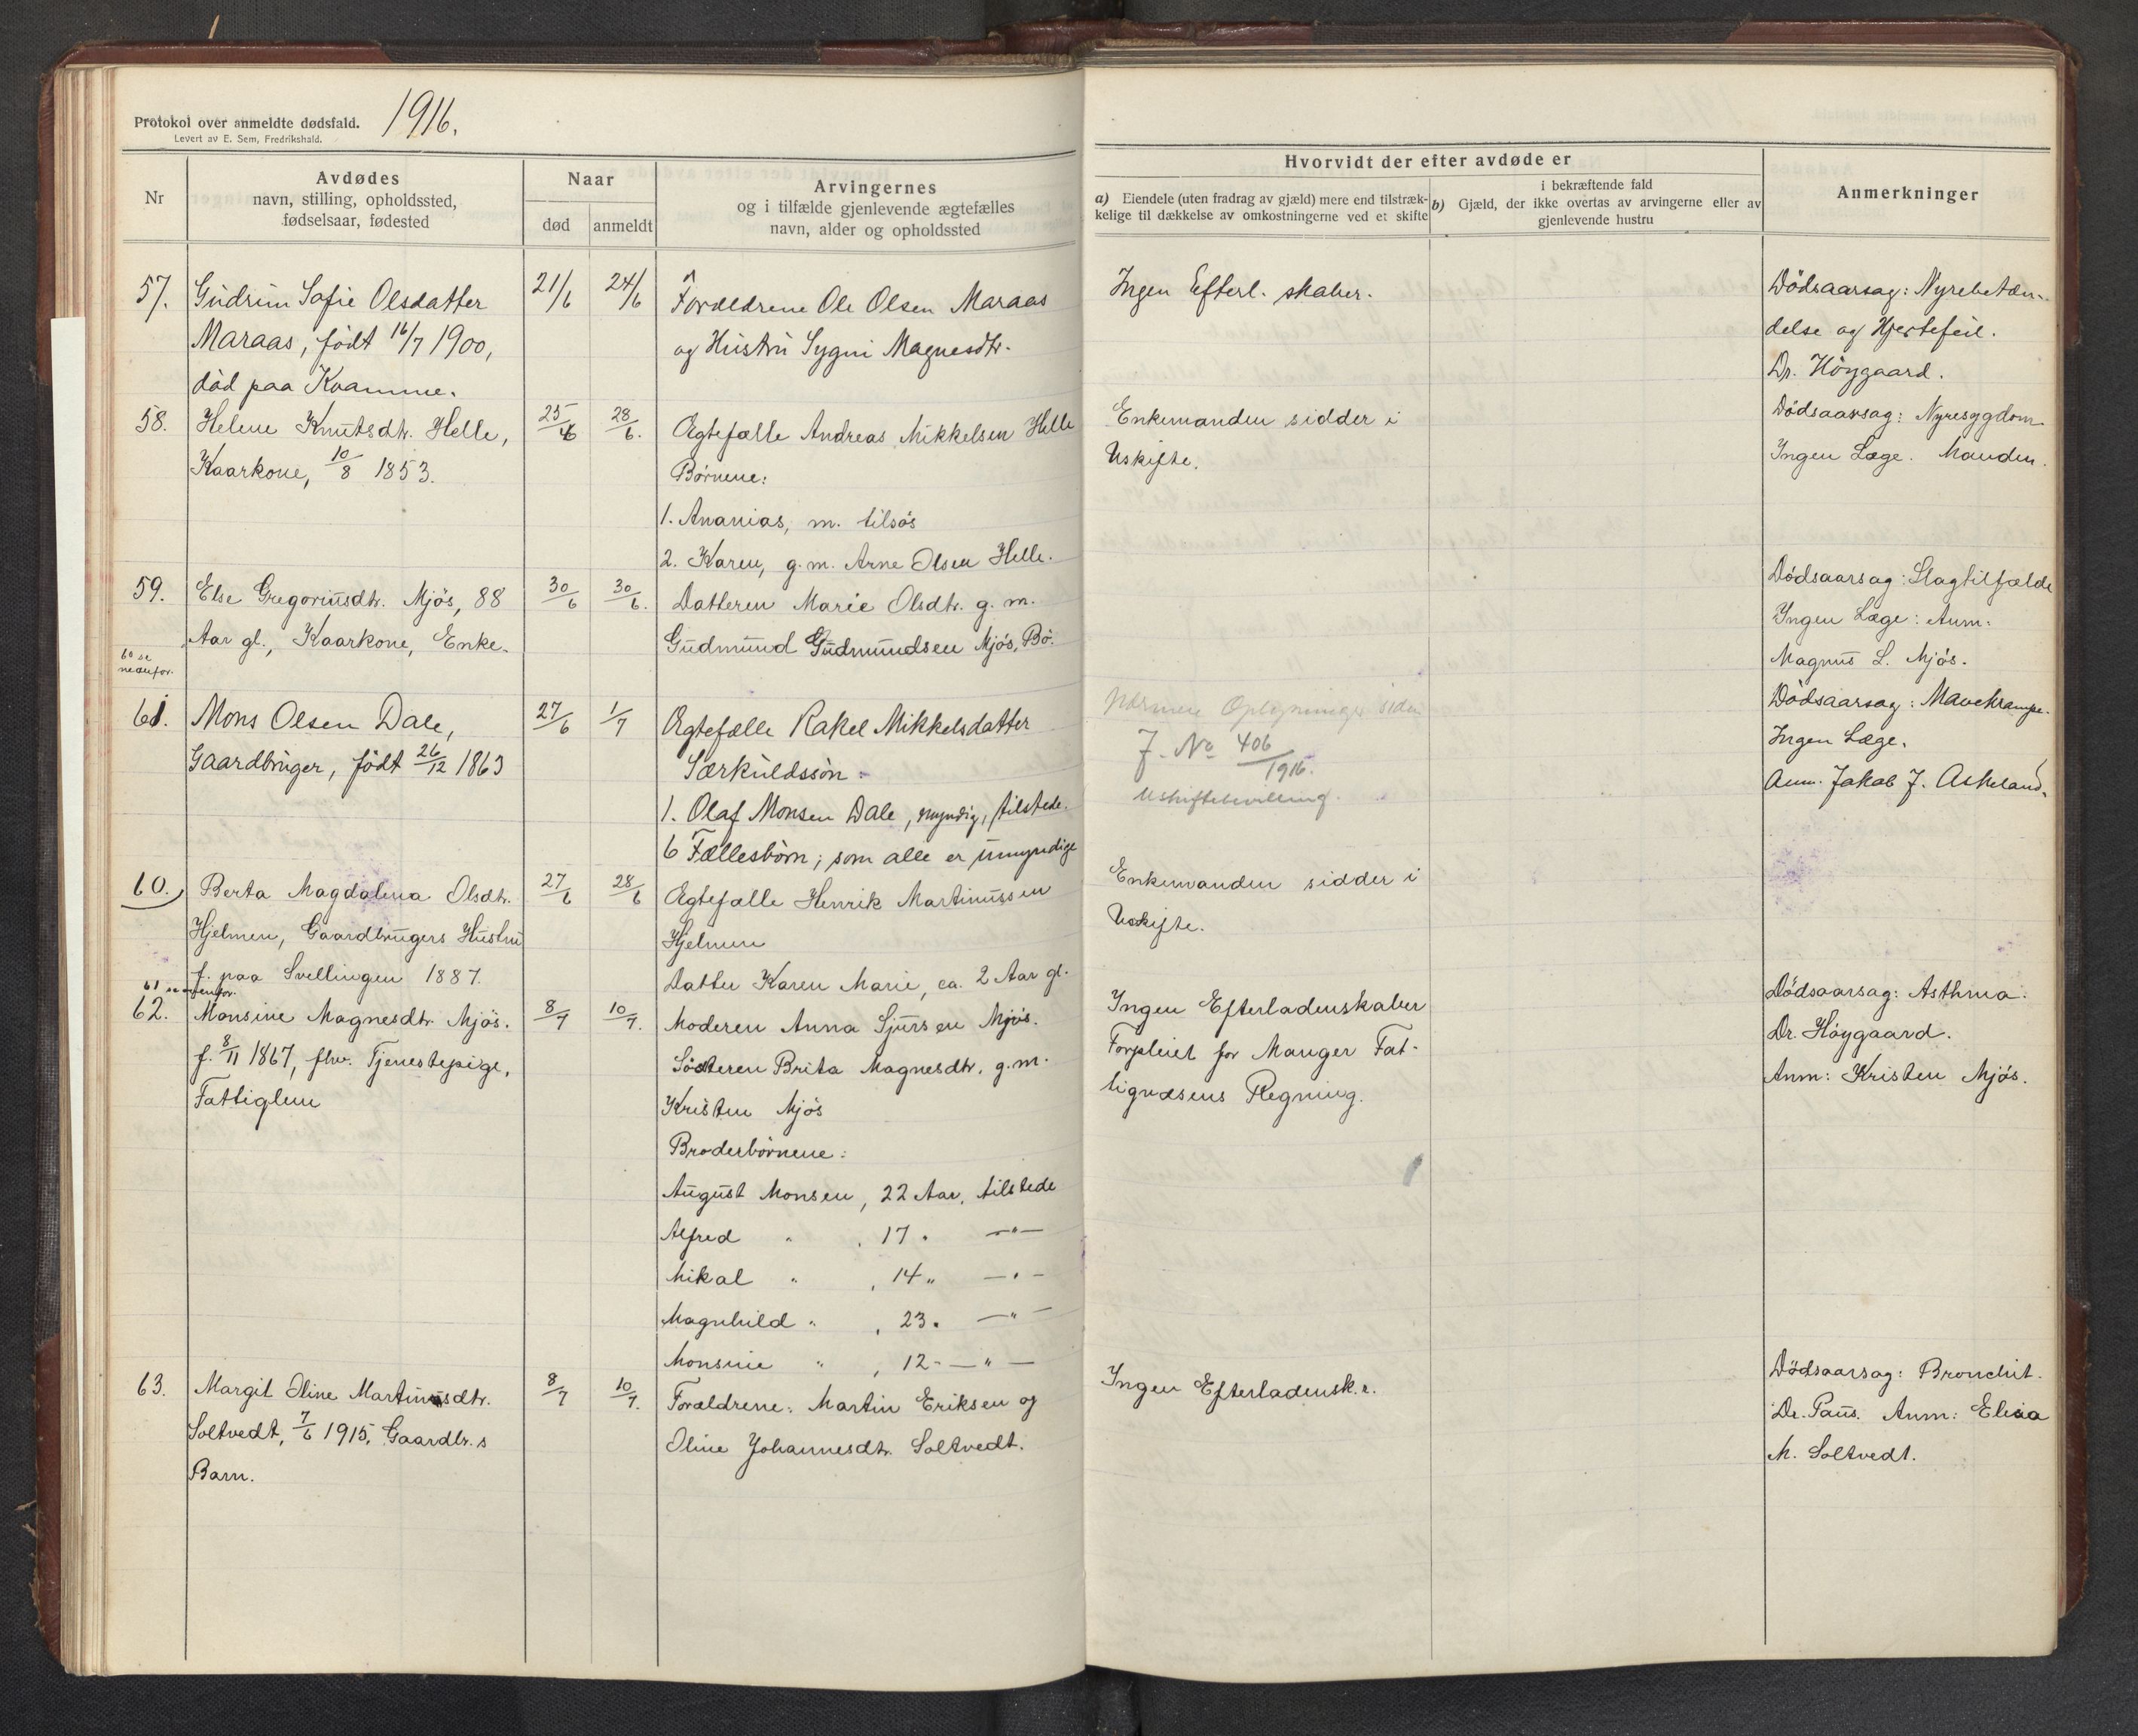 Protokol over anmeldte dødsfald. 1916.
Levert av E. Sem, Fredrikshald.
Nr
Avdødes
navn, stilling, opholdssted,
fødselsaar, fødested
Naar
død
anmeldt
Arvingernes
og i tilfælde gjenlevende ægtefælles
navn, alder og opholdssted
Hvorvidt der efter avdøde er
a) Eiendele (uten fradrag av gjæld) mere end tilstræk-
kelige til dækkelse av omkostningerne ved et skifte
i bekræftende fald
b) Gjæld, der ikke overtas av arvingerne eller av
gjenlevende hustru
Anmerkninger
57.
Gudrun Sofie Olsdatter
Maraas, født 16/7 1900,
död paa Kvamme.
21/6
24/6
Forældrene Ole Olsen Maraas
og Hustru Sygni Magnesdtr.
Ingen Efterl. skaber.
Dödsaarsag: Nyrebetæn-
delse og Hjertefeil.
Dr. Höygaard.
58.
Helene Knutsdtr. Helle,
Kaarkone, 10/8 1853.
25/6
28/6.
Ægtefælle Andreas Mikkelsen Helle
Børnene:
1. Ananias, m. tilsös
2. Karen, g.m. Arne Olsen Helle.
Enkemanden sidder i
Uskifte.
Dödsaarsag: Nyresygdom
Ingen Læge. Manden.
59.
Else Gregoriusdtr. Mjös, 88
Aar gl., Kaarkone, Enke.
30/6
30/6.
Datteren Marie Olsdtr. g. m.
Gudmund Gudmundsen Mjös, Bö.
Dödsaarsag: Slagtilfælde
Ingen Læge: Anm:
Magnus L. Mjös.
60 se
nedenfor.
61.
Mons Olsen Dale,
Gaardbruger, født 26/12 1863
27/6
1/7
Ægtefælle Rakel Mikkelsdatter
Særkuldssön:
1. Olaf Monsen Dale, myndig, tilstede.
6 Fællesbörn; som alle er umyndige
Nærmere Oplysninger siden
J. No 406/1916.
Uskiftebevilling.
Dödsaarsag: Mavekrampe.
Ingen Læge.
Anm. Jakob J. Askeland.
60.
Berta Magdalena Olsdtr.
Hjelmen, Gaardbrugers Hustru
f. paa Svellingen 1887.
27/6
28/6
Ægtefælle Henrik Martinussen
Hjelmen
Datter Karen Marie, ca. 2 Aar gl.
Enkemanden sidder i
Uskifte.
61 se ovenfor.
62.
Monsine Magnesdtr. Mjös.
f. 8/11 1867, fhv. Tjenestepige,
Fattiglem
8/7
10/7.
Moderen Anna Sjursen Mjös.
Sösteren Brita Magnesdtr. g.m.
Kristen Mjös
Broderbörnene:
August Monsen, 22 Aar, tilstede
Alfred " , 17 " —"—
Mikal " , 14 " —"—
Magnhild " , 23 " —"—
Monsine " , 12 - —"—
Ingen Efterladenskaber
Forpleiet for Manger Fat-
tigvæsens Regning.
Dödsaarsag: Asthma.
Dr. Höygaard.
Anm: Kristen Mjös.
63.
Margit Oline Martinusdtr.
Soltvedt, 7/6 1915, Gaardbr.s
Barn.
8/7
10/7.
Forældrene: Martin Eriksen og
Oline Johannesdtr. Soltvedt.
Ingen Efterladensk.r.
Dödsaarsag: Bronchit.
Dr. Paus. Anm: Elisa
M. Soltvedt.